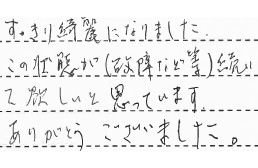 すっきり綺麗になりました.
この状態が(故障など等)続い
て欲しいと思っています.
ありがとうございました。